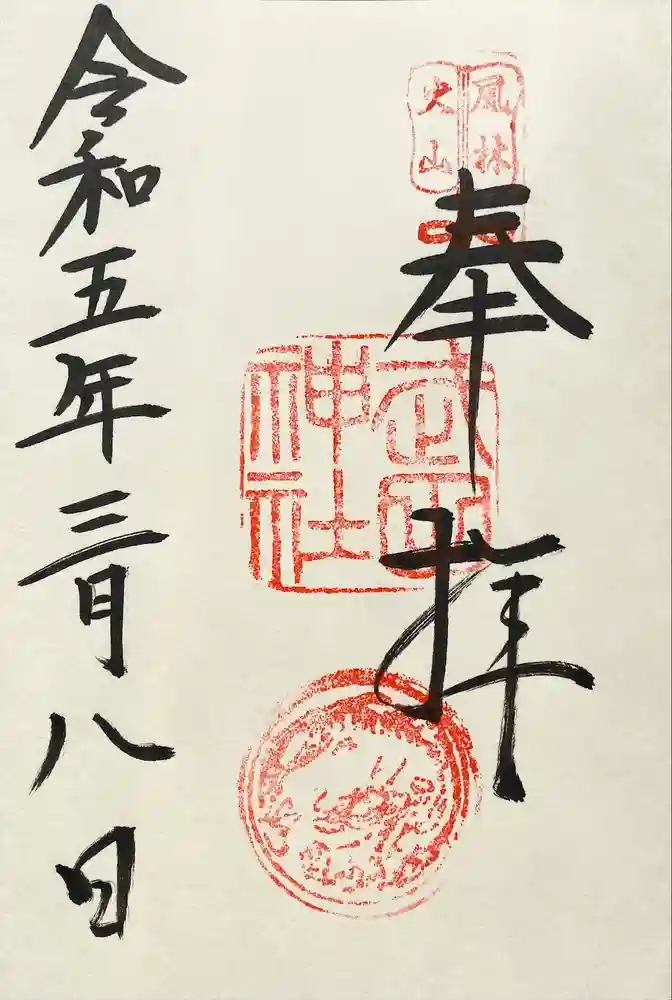 風林
火山
奉拝
武田
神社
令和五年三月八日